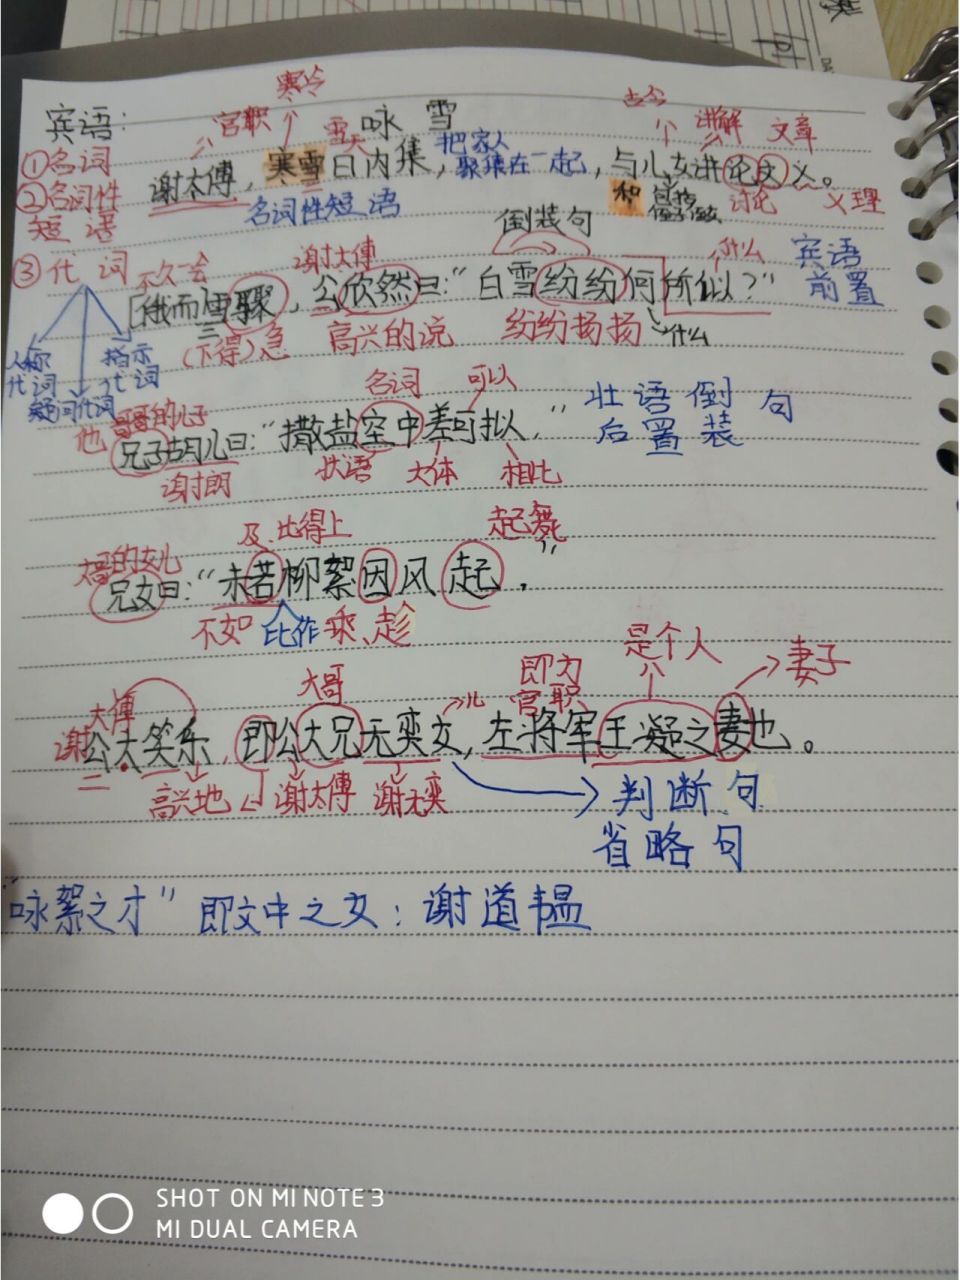 寒冷
宾语: 官职 咏雪 古今 讲解 文章
①名词 雪天 把家人
谢太傅,寒雪日内集,聚集在一起,与儿女讲论文义。
②名词性 名词性短语 和 讨论 义理
短语 倒装句
③代词 不久一会 谢太傅 什么 宾语
俄而雪骤,公欣然曰:“白雪纷纷何所似?” 前置
三 (下得)急 高兴的说 纷纷扬扬 什么
人称 指示
代词 代词
疑问代词 名词 可以 壮语倒句
他 哥哥的儿子 后置装
兄子胡儿曰:“撒盐空中差可拟,”
谢朗 状语 大体 相比
及、比得上 起舞
大哥的女儿
兄女曰:“未若柳絮因风起,”
不如 比作 乘、趁
是个人
大哥 即为 妻子
太傅 儿 官职
谢公大笑乐,即公大兄无奕女,左将军王凝之妻也。
二 高兴地 谢太傅 谢无奕 判断句
省略句
“咏絮之才” 即文中之女:谢道韫
SHOT ON MI NOTE 3
MI DUAL CAMERA